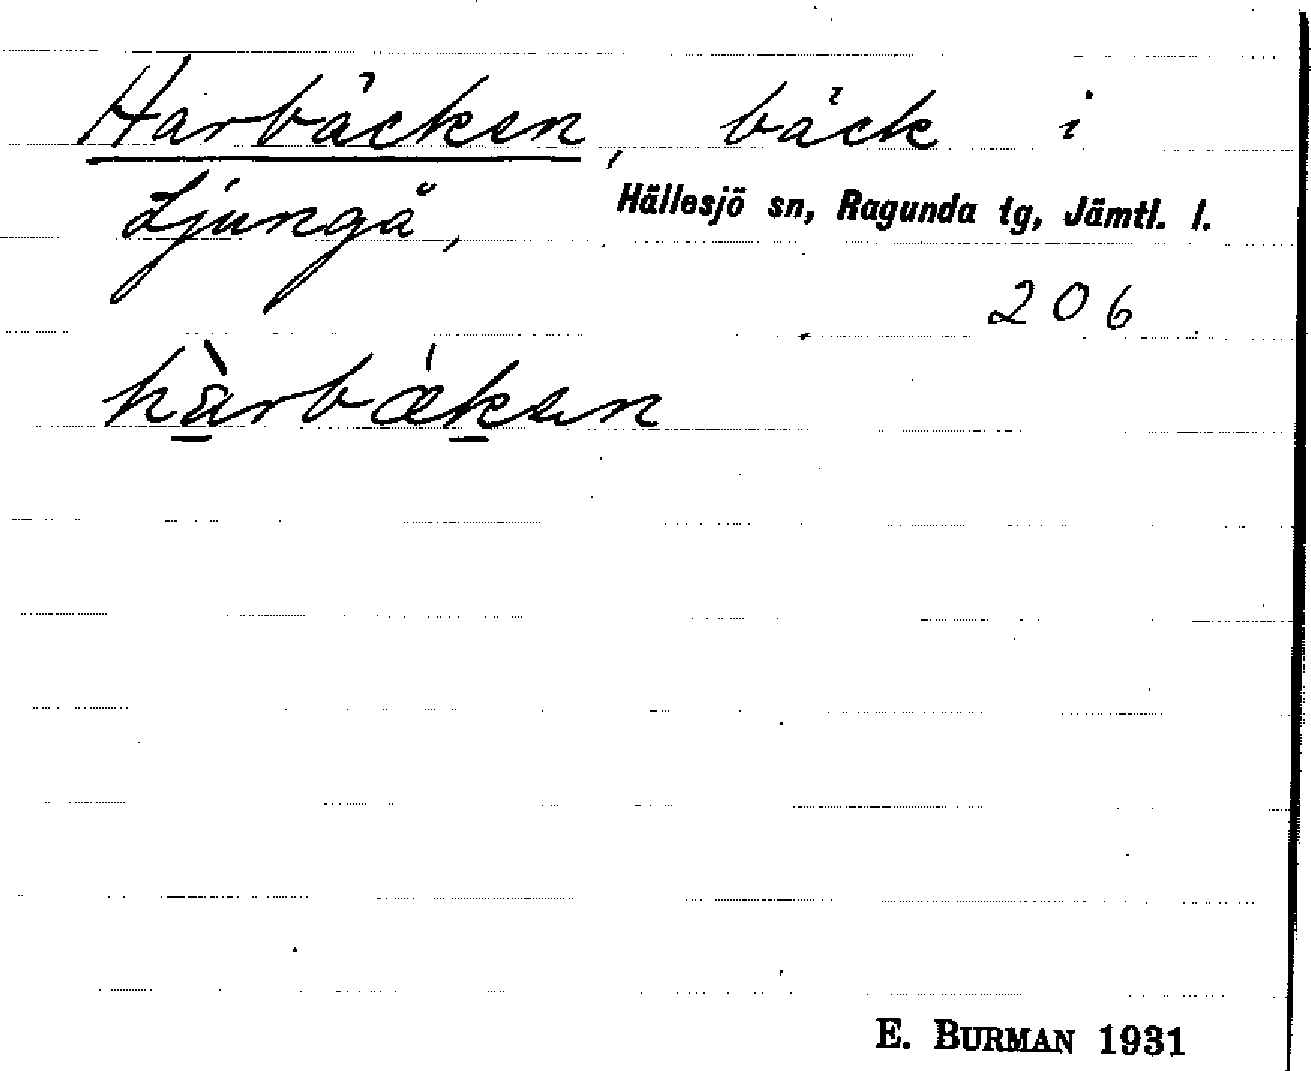 Harbäcken, bäck i
Ljungå, Hällesjö sn, Ragunda tg, Jämtl. l.
206
hàrbǽkən
E. BURMAN 1931